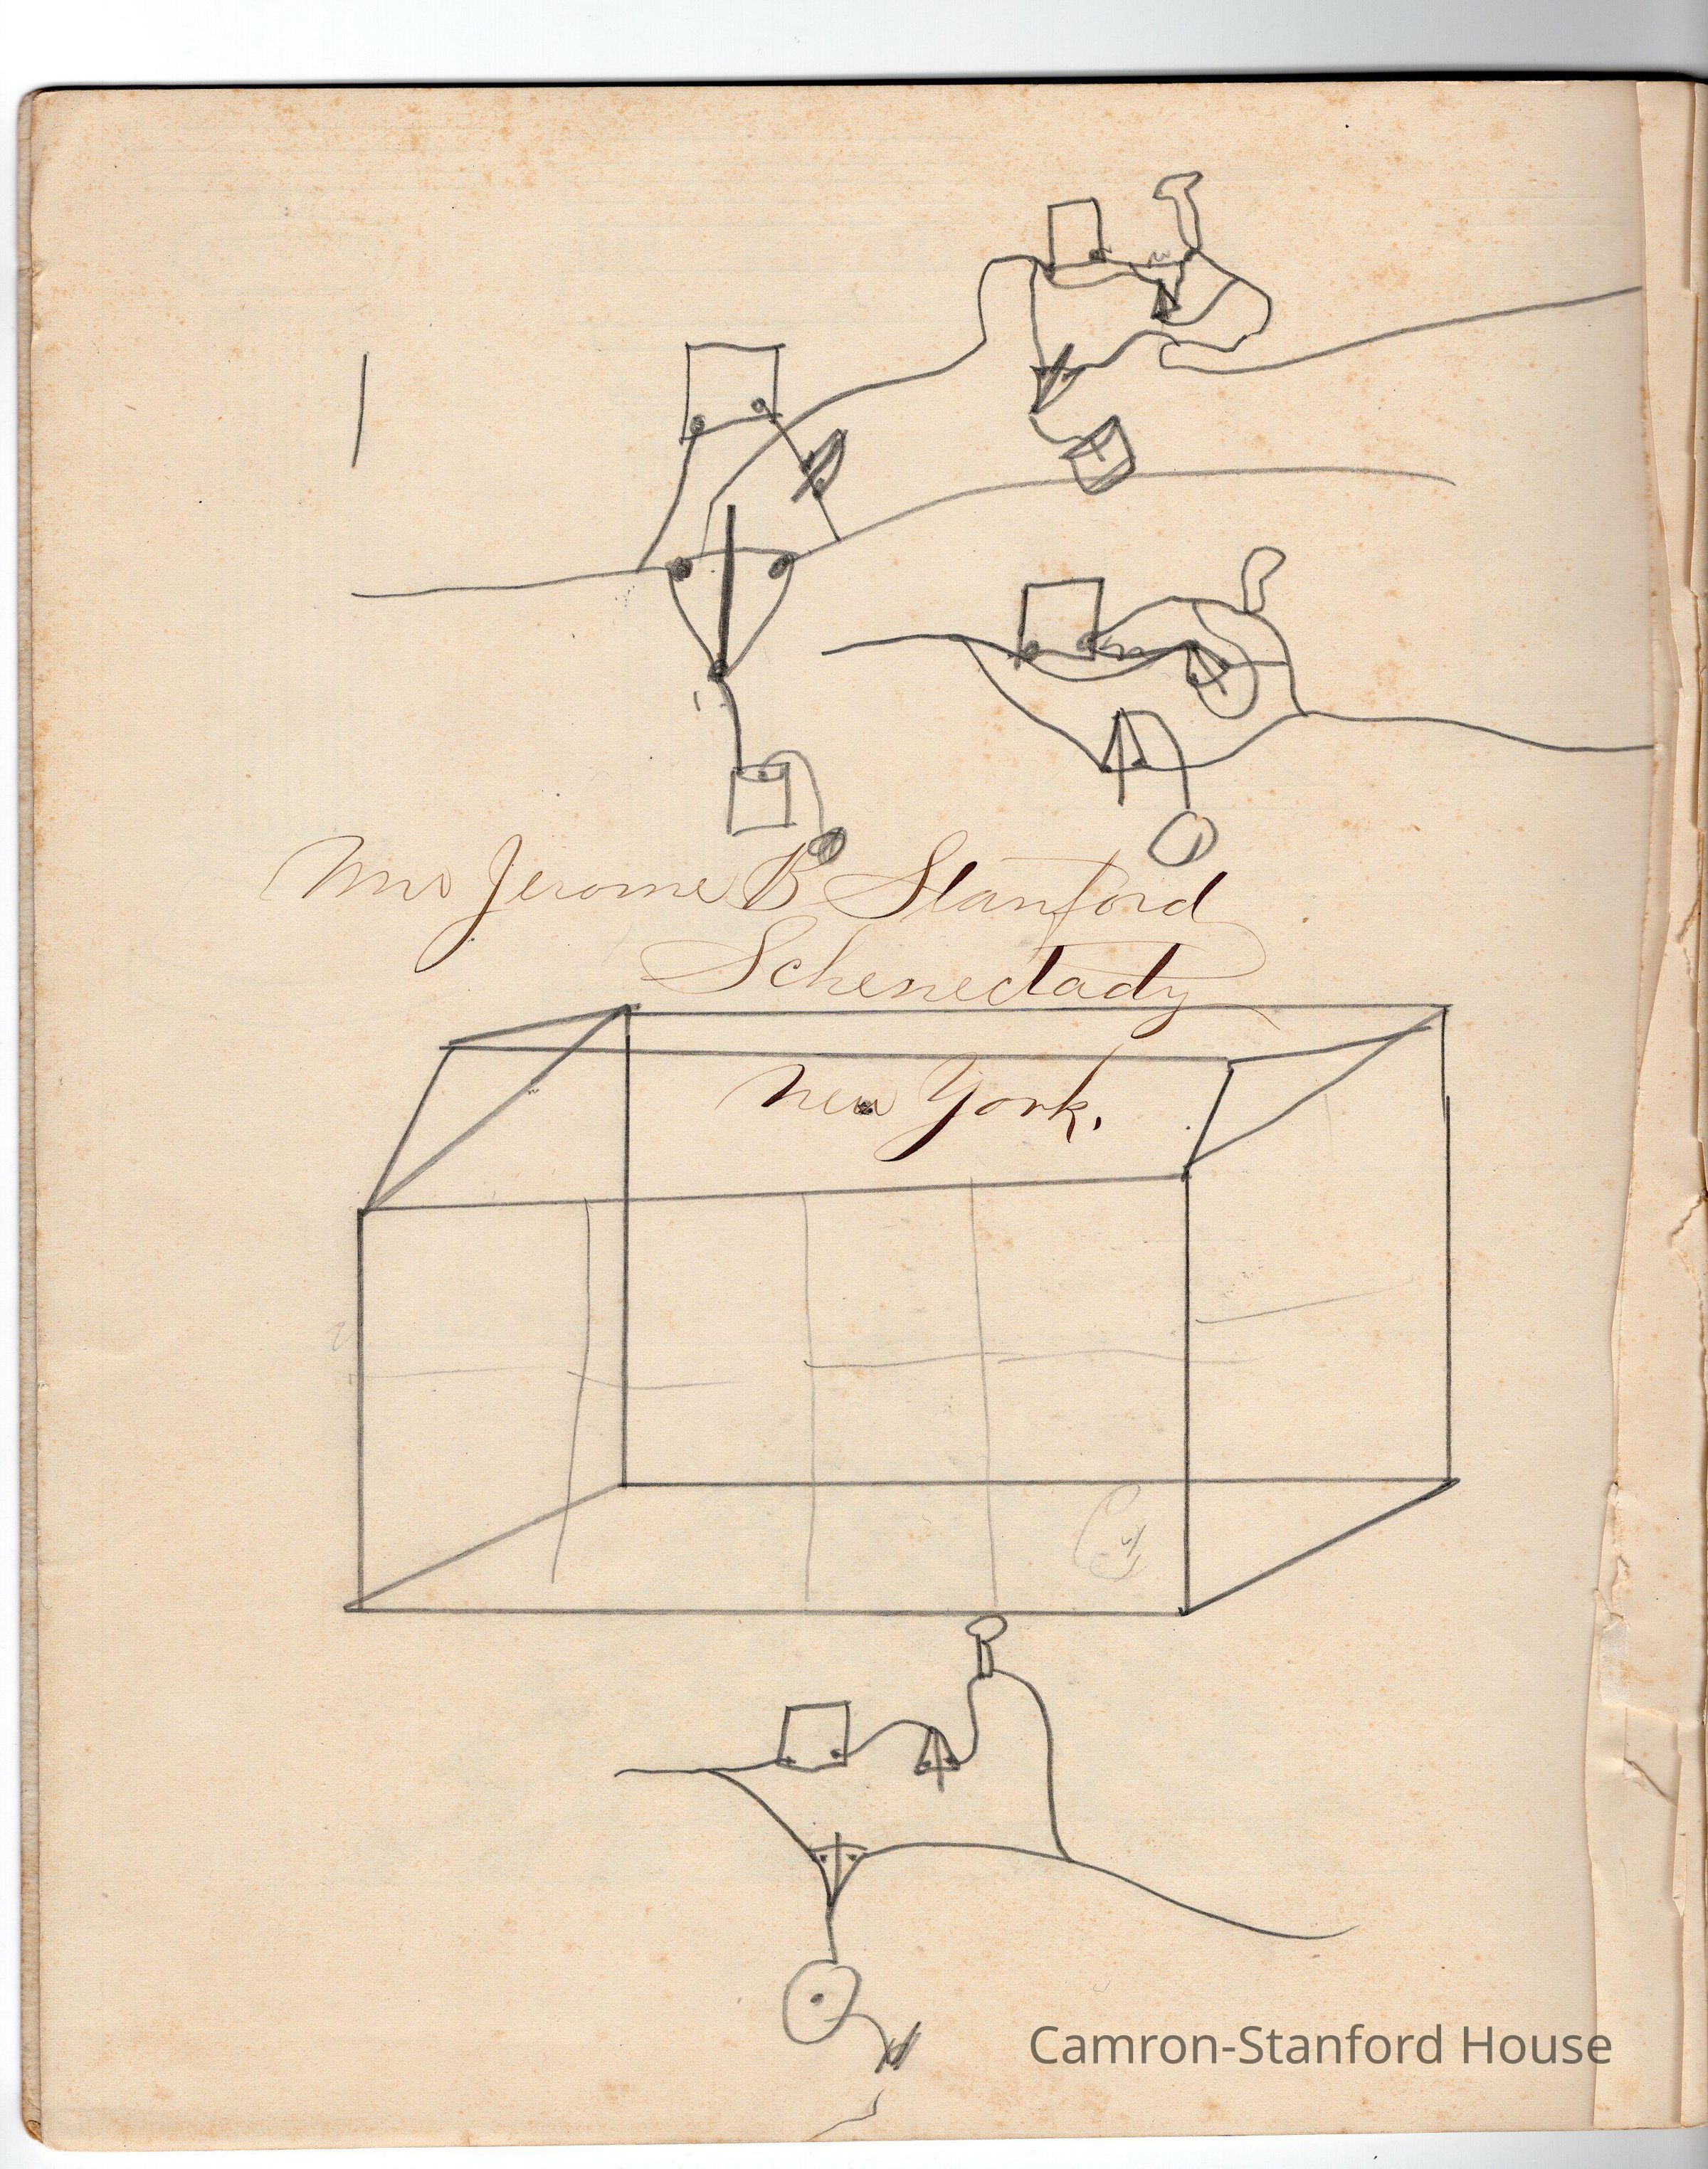 Mrs Jerome B Stanford
Schenectady
New York.
Camron-Stanford House